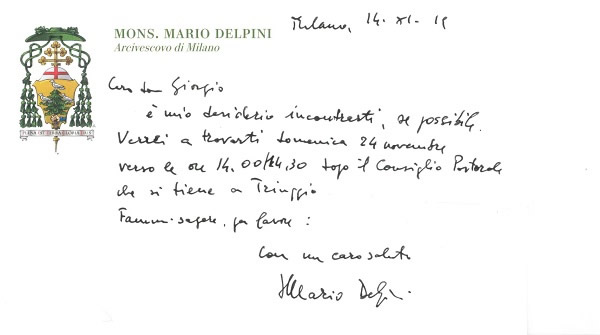 MONS. MARIO DELPINI
Arcivescovo di Milano
Milano, 14. XI. 19
Caro don Giorgio
è mio desiderio incontrarti, se possibile.
Verrei a trovarti domenica 24 novembre
verso le ore 14.00/14.30 dopo il Consiglio Pastorale
che si tiene a Triuggio
Fammi sapere, per favore:
Con un caro saluto
+ Mario Delpini